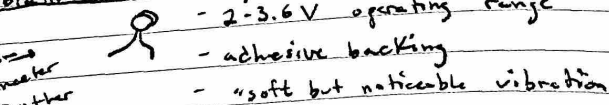 - 2-3.6 V operating range
- adhesive backing
- "soft but noticeable vibration